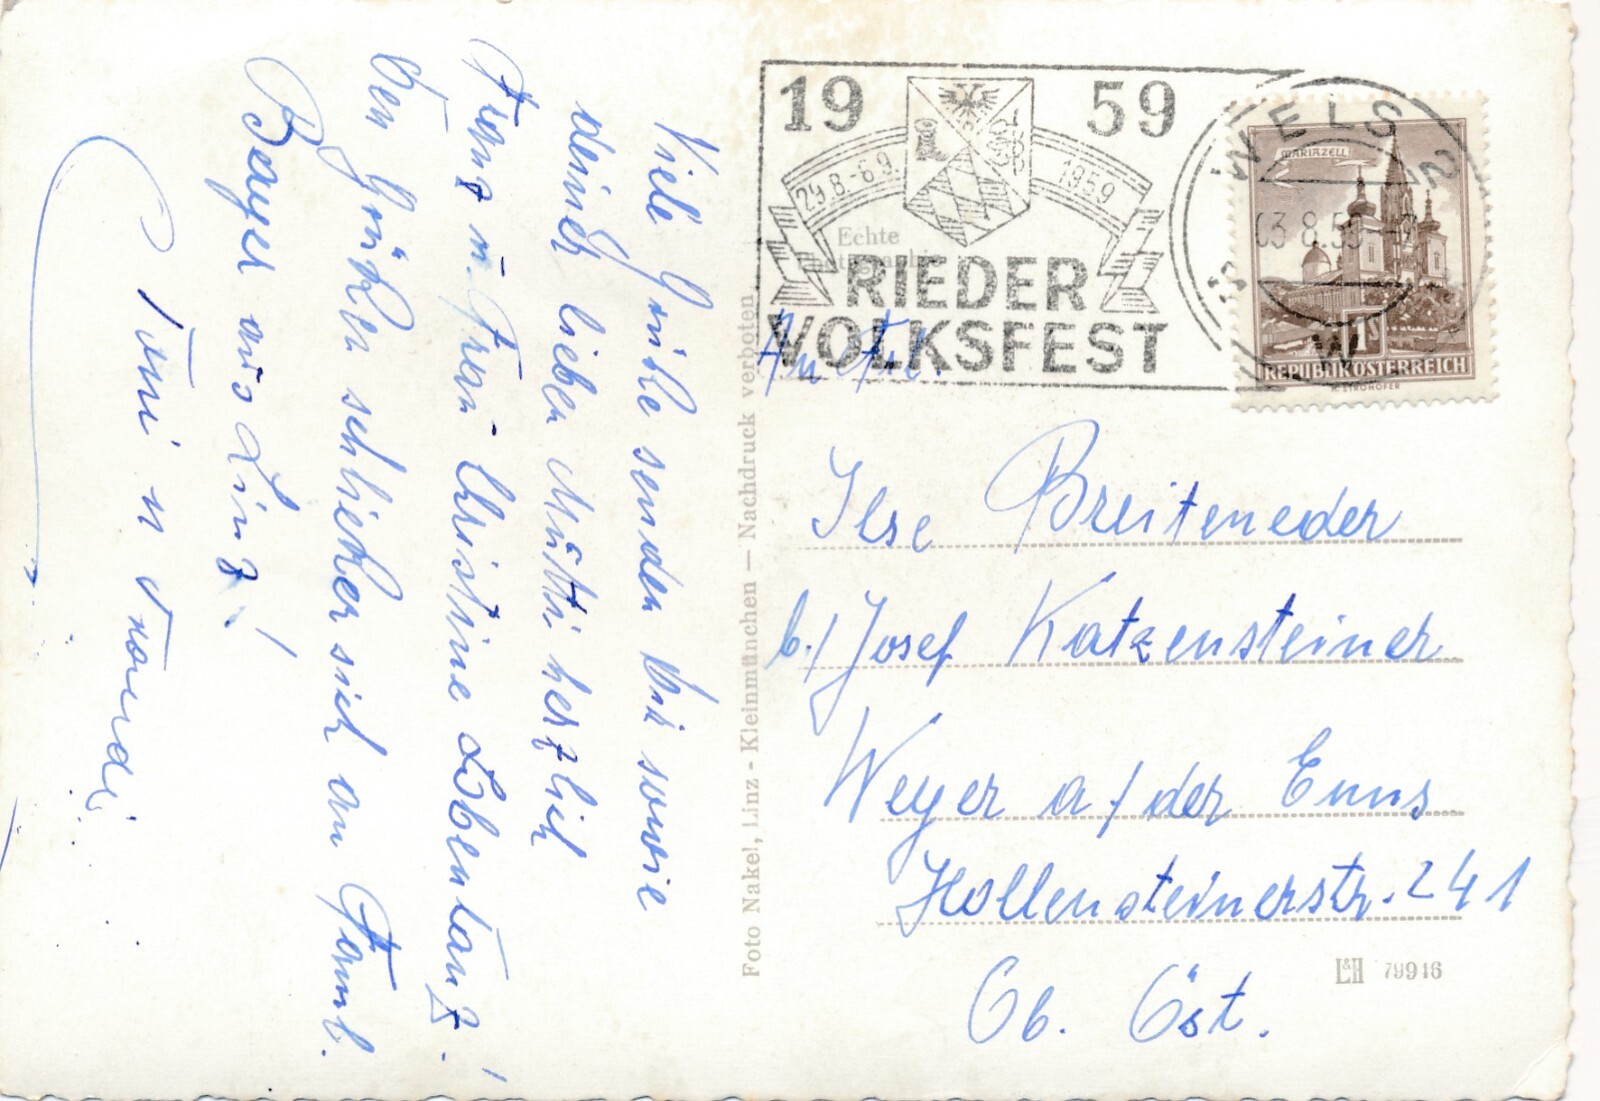 Viele Grüße senden wir sowie
deiner lieben Mutti herzlich
Franz u. Frau Christine Lobentanz!
Den Grüßen schließen sich an Faml.
Bayer aus Linz!
Toni u Traudi
Foto Nakel, Linz - Kleinmünchen — Nachdruck verboten.
1959
29.8.-6.9. 1959
Echte
RIEDER
VOLKSFEST
WELS 2
03.8.59
MARIAZELL
1S
REPUBLIK ÖSTERREICH
An Frl.
Ilse Breiteneder
b./Josef Katzensteiner
Weyer a/der Enns
Hollensteinerstr. 241
Ob. Öst.
L&H 79916